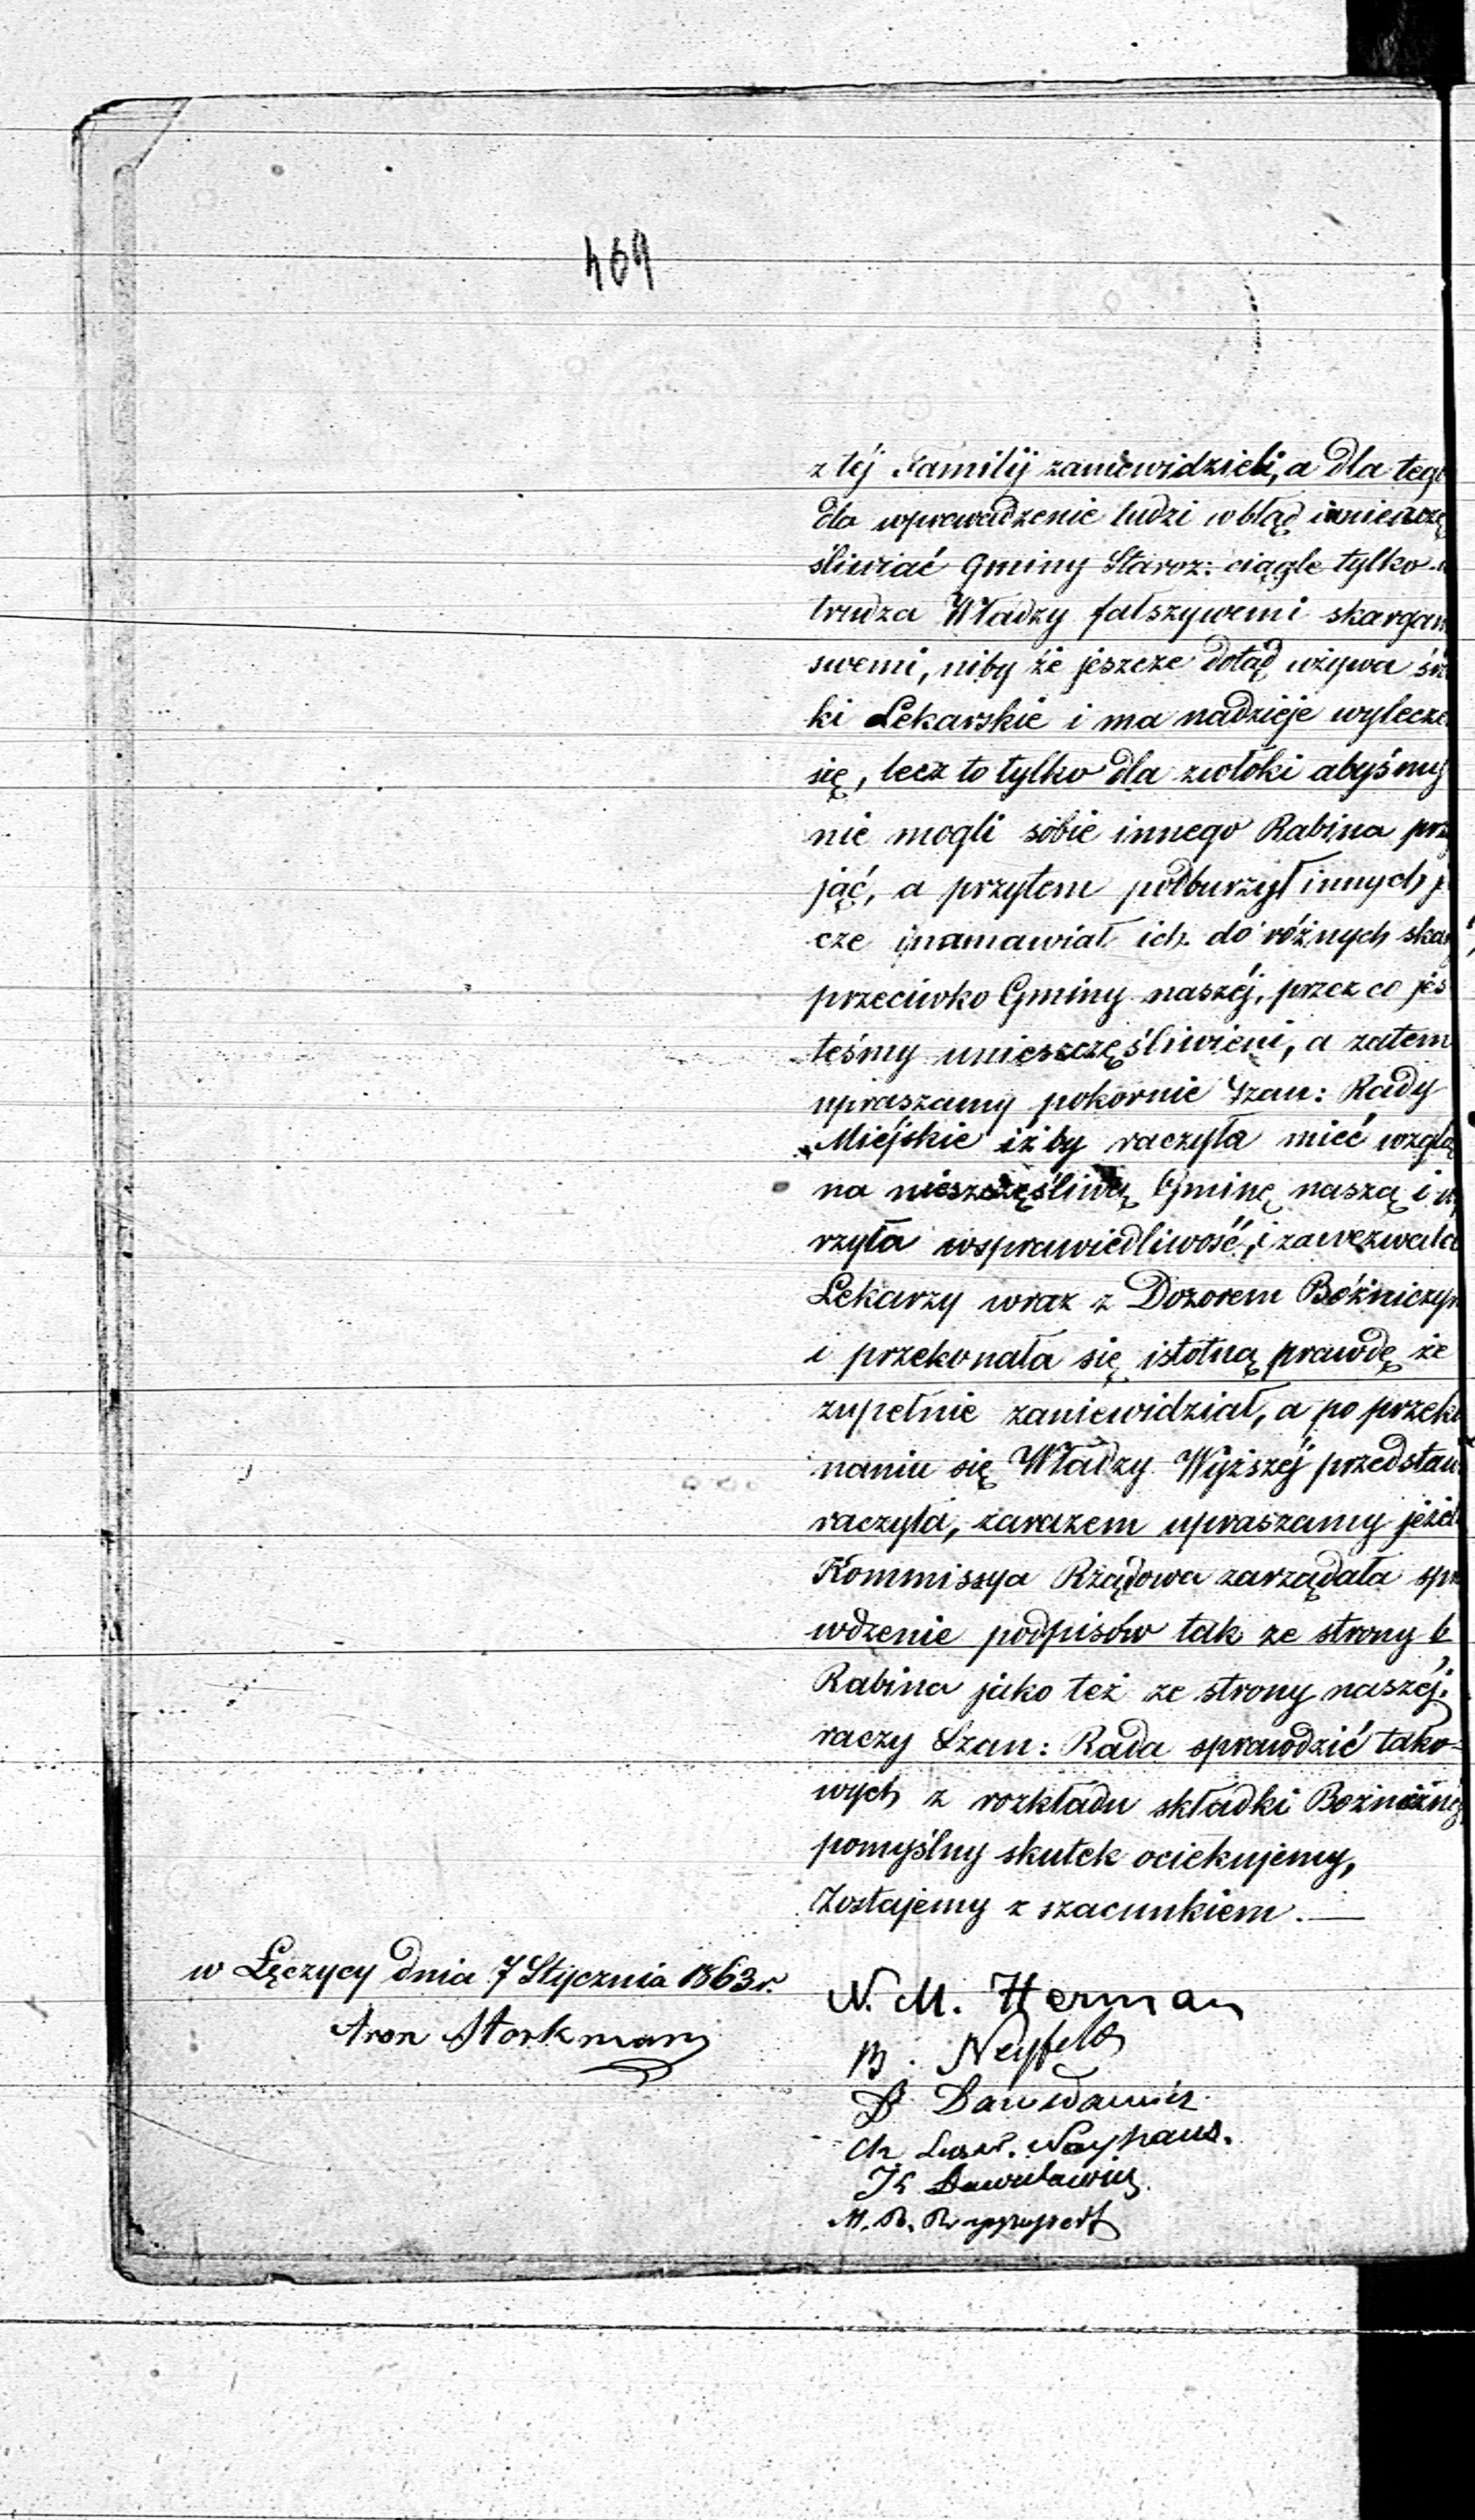 469
z téj Familij zaniewidzieli, a dla tego
dla wprowadzenie ludzi w błąd i unieszczę
śliwiać Gminy Staroz: ciągle tylko
trudza Władzy fałszywemi skargam
swemi, niby że jeszcze dotąd używa śr
ki Lekarskie i ma nadzieje wylecze
się, lecz to tylko dla zwłoki abyśmy
nie mogli sobie innego Rabina prz
jąć, a przytem podburzył innych j
cze i namawiał ich do różnych skar
przeciwko Gminy naszéj, przez co jes
teśmy unieszczęśliwieni, a zatem
upraszamy pokornie Szan: Rady
Miéjskie iżby raczyła mieć wzglą
na nieszczęśliwą Gminę naszą i w
rzyła w sprawiedliwość, i zawezwała
Lekarzy wraz z Dozorem Bóżniczym
i przekonała się istotną prawdę że
zupełnie zaniewidział, a po przeko
naniu się Władzy Wyższéj przedstaw
raczyła, zarazem upraszamy jeżel
Kommissya Rządowa zarządała spra
wdzenie podpisów tak ze strony b
Rabina jako też ze strony naszéj,
raczy Szan: Rada sprawdzić tako-
wych z rozkładu składki Bożniczn
pomyślny skutek ociekujemy,
Zostajemy z szacunkiem. —
w Łęczycy dnia 7 Stycznia 1863 r.
Aron Storkman
N. M. Herman
B. Neyfeld
D Dawidowicz
Ch Nayhaus.
M. R. Rappeport